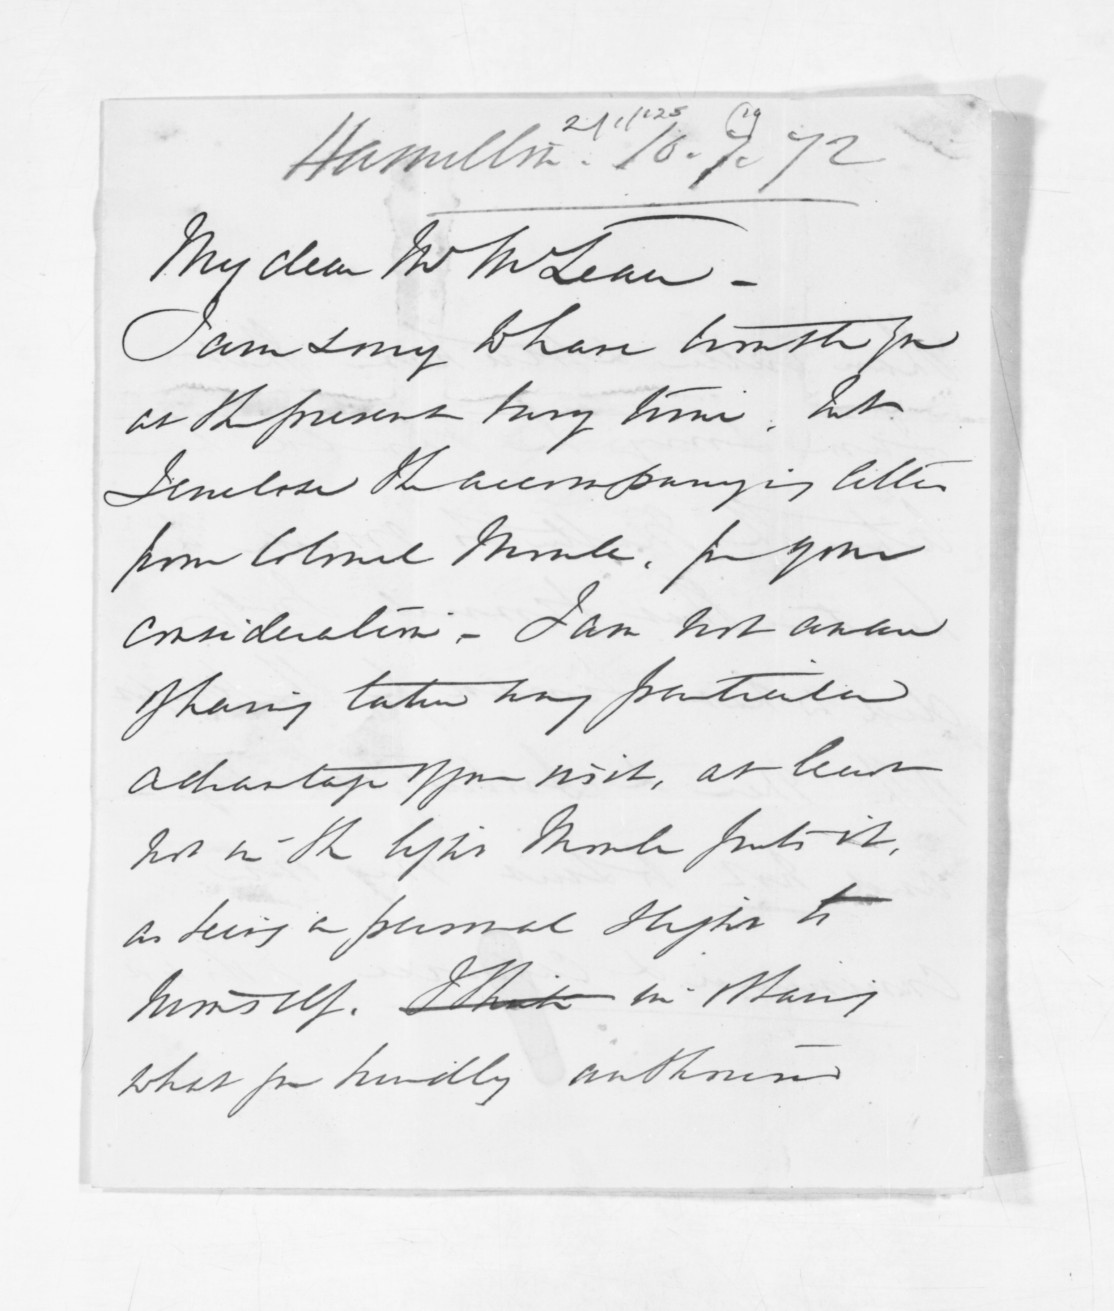 Hamilton. 16. 7. 72
My dear Mr McLean -
I am sorry to have trouble you
at the present busy time, but
I enclose the accompanying letter
from Colonel Moule, for your
consideration - I am not aware
of having taken any particular
advantage of your visit, at least
not in the light Moule puts it,
as being a personal slight to
himself. I think in
what you kindly authorised